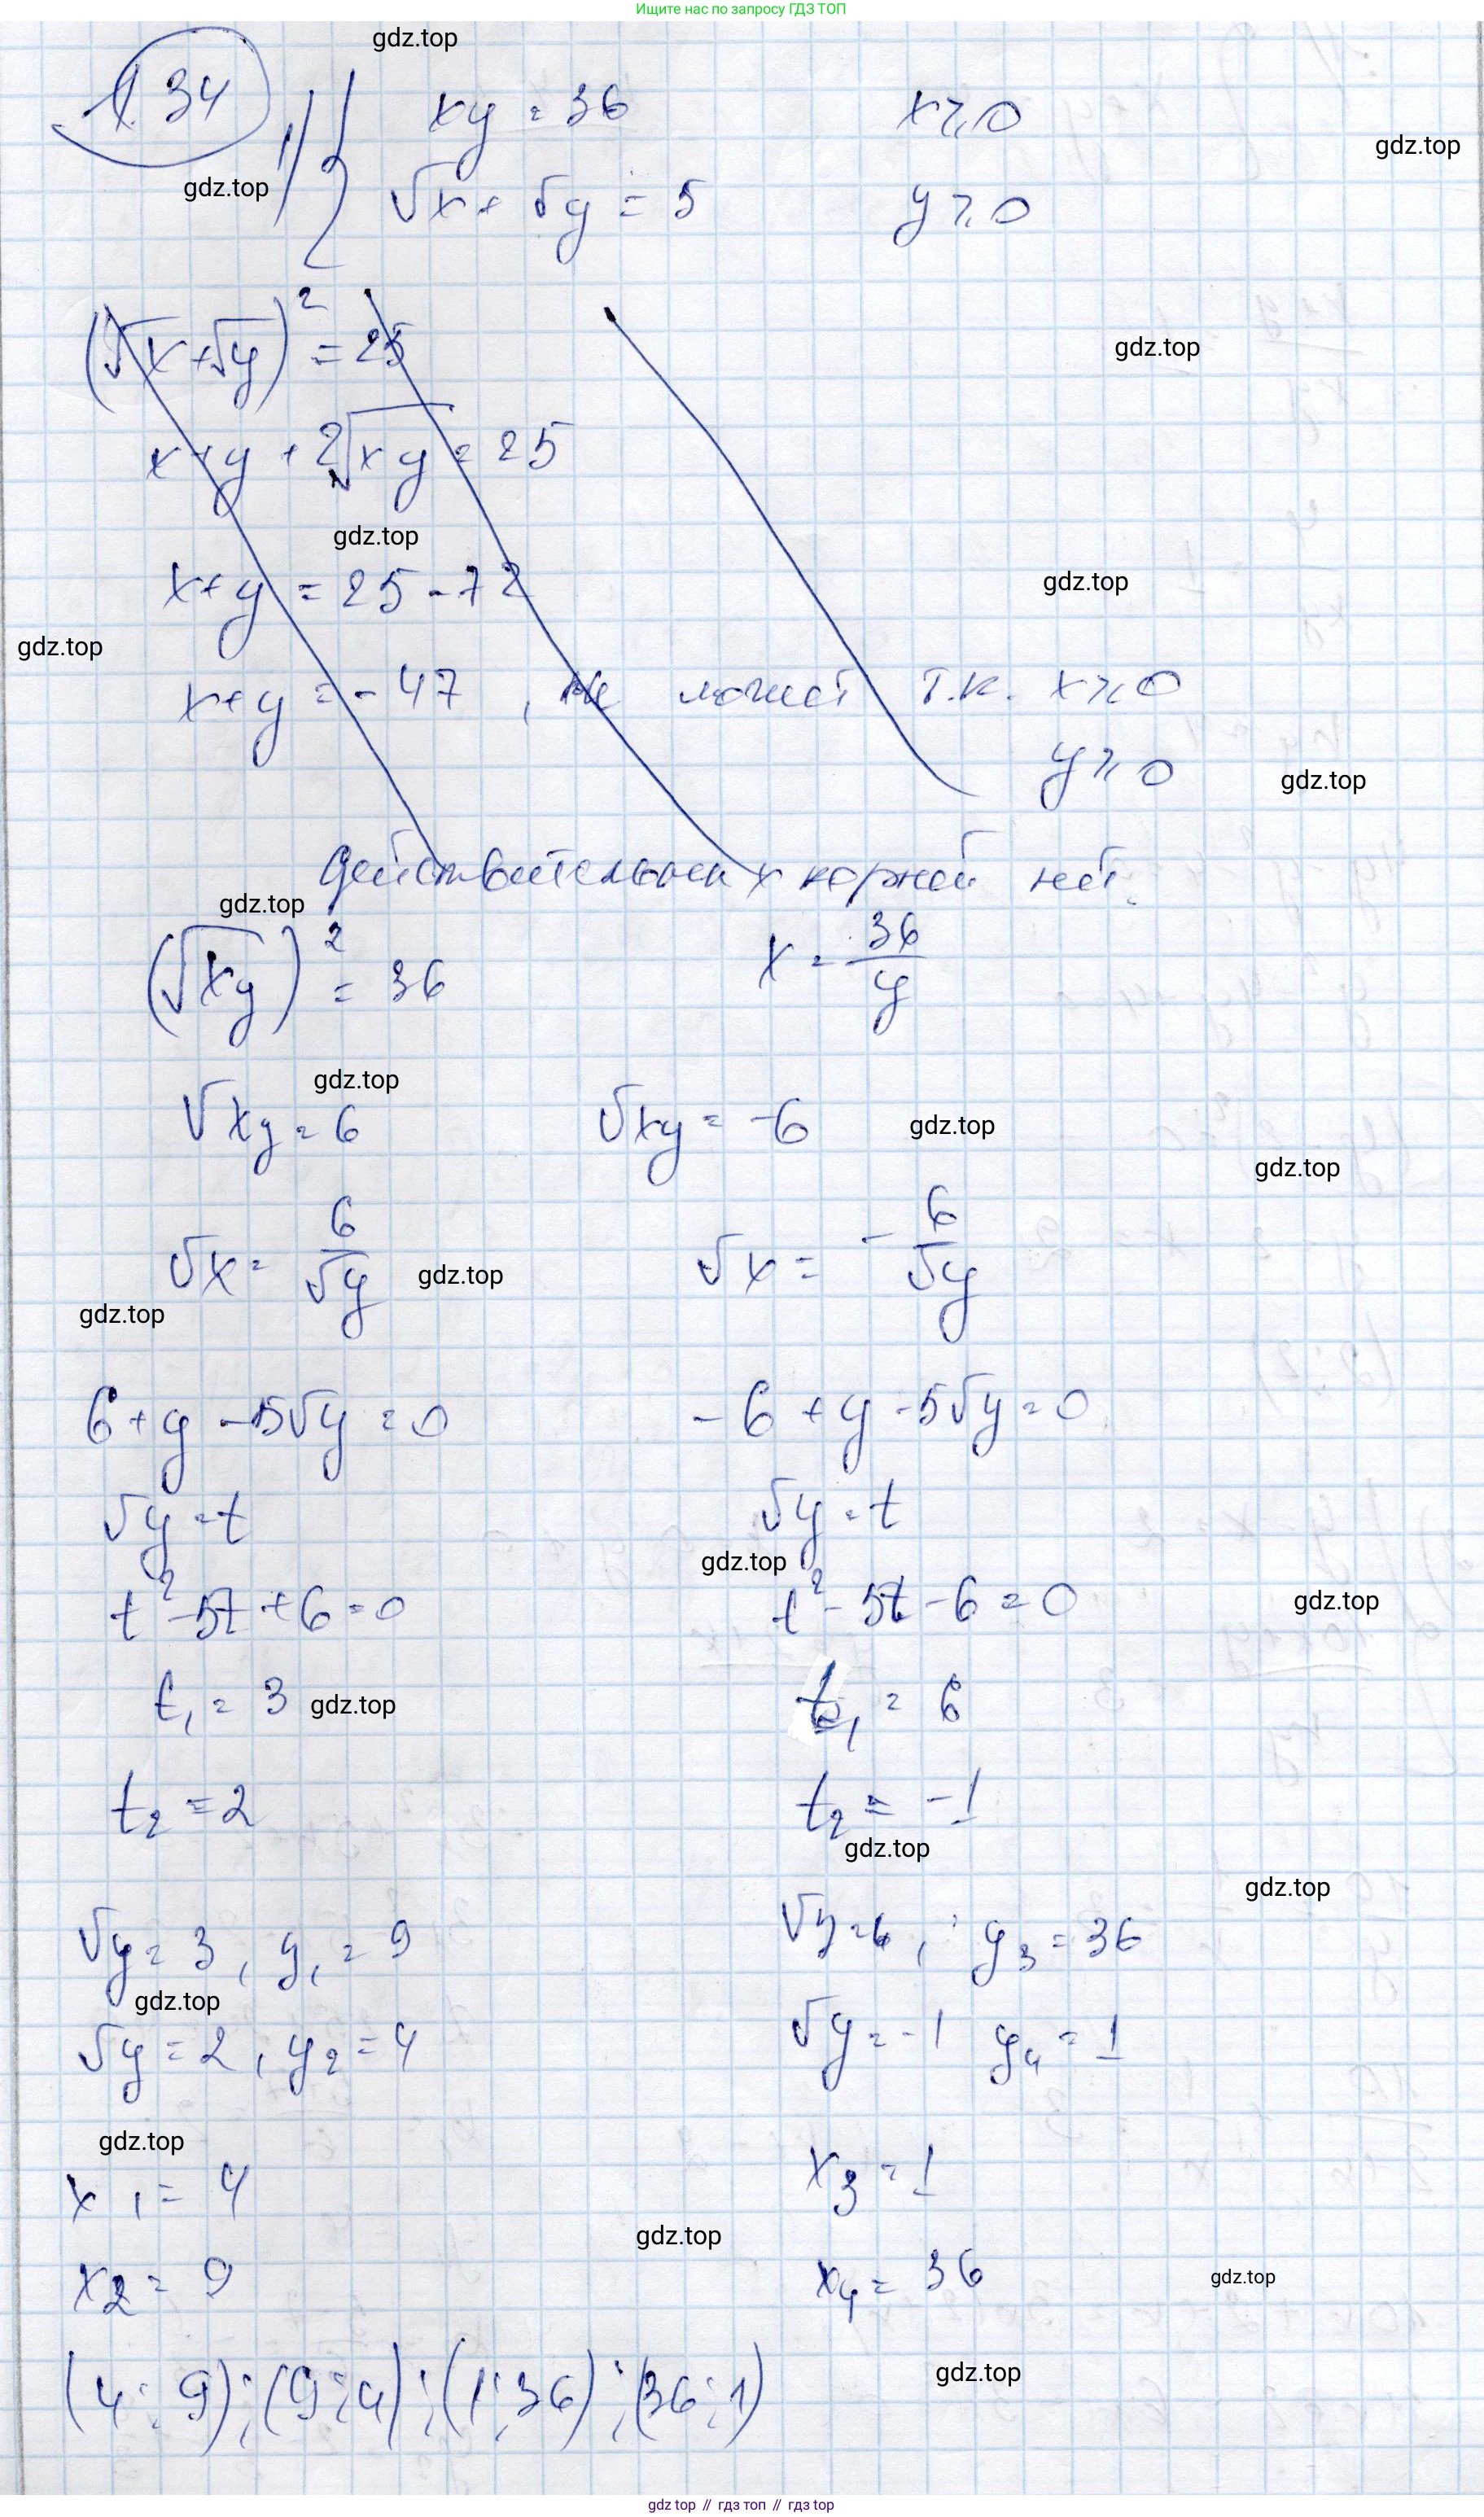 Ищите нас по запросу ГДЗ ТОП
gdz.top
134
1) { xy = 36 x ≥ 0
gdz.top
gdz.top
√x + √y = 5 y ≥ 0
(√x + √y)² = 25
gdz.top
x + y + 2√xy = 25
gdz.top
x + y = 25 - 72
gdz.top
gdz.top
x + y = -47, не может т.к. x ≥ 0
y ≥ 0
gdz.top
действительных корней нет.
gdz.top
(√xy)² = 36 x = 36/y
gdz.top
√xy = 6 √xy = -6
gdz.top
gdz.top
√x = 6/√y √x = -6/√y
gdz.top
gdz.top
6 + y - 5√y = 0 -6 + y - 5√y = 0
√y = t √y = t
gdz.top
t² - 5t + 6 = 0 t² - 5t - 6 = 0
gdz.top
t₁ = 3 t₁ = 6
gdz.top
t₂ = 2 t₂ = -1
gdz.top
gdz.top
√y = 3, y₁ = 9 √y = 6, y₃ = 36
gdz.top
√y = 2, y₂ = 4 √y = -1 y₄ = 1
gdz.top
x₁ = 4 x₃ = 1
gdz.top
x₂ = 9 x₄ = 36
gdz.top
gdz.top
(4; 9); (9; 4); (1; 36); (36; 1)
gdz.top // гдз топ // гдз top